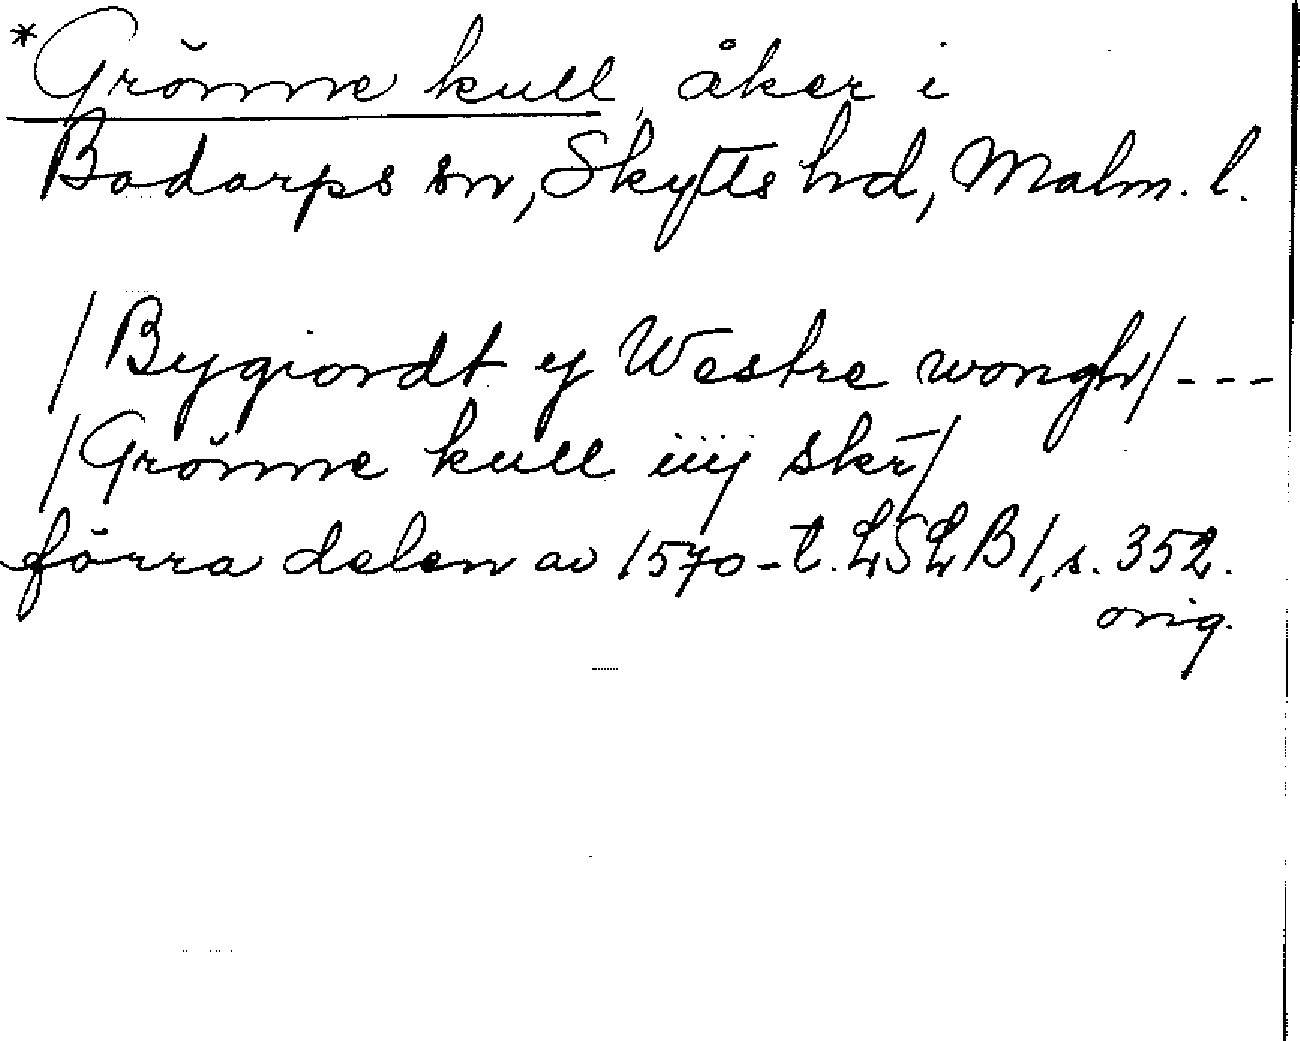 *Grönne kull, åker i
Bodarps sn, Skytts hd, Malm. l.
/Bygiordt y Westre wongh/---
/Grönne kull iiij skr/
förra delen av 1570-t. LSLB1, s. 352.
orig.